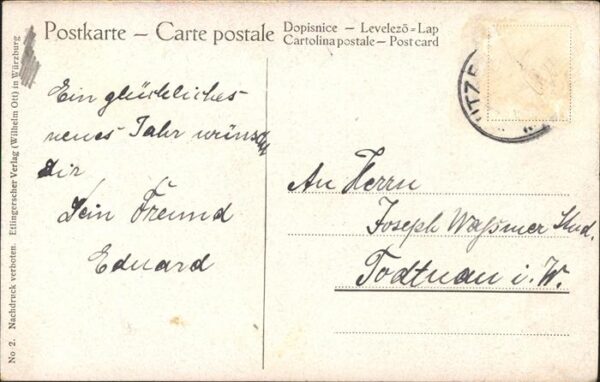 Postkarte – Carte postale
Dopisnice – Levelező-Lap
Cartolina postale – Post card
Ein glückliches
neues Jahr wünscht
dir
Dein Freund
Eduard
An Herrn
Joseph Waßmer Stud.
Todtnau i. W.
No 2. Nachdruck verboten. Etlingerscher Verlag (Wilhelm Ott) in Würzburg